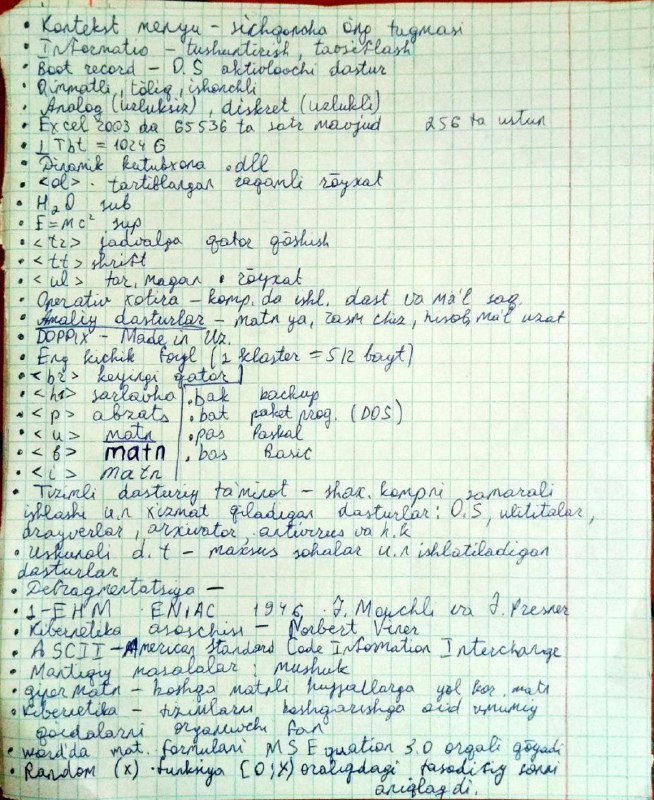 • Kontekst menyu - sichqoncha o'ng tugmasi
• Informatio - tushuntirish, tavsiflash
• Boot record - O.S aktivlovchi dastur
• Qimmatli, to'liq, ishonchli
• Analog (uzluksiz), diskret (uzlukli)
• Excel 2003 da 65536 ta satr mavjud 256 ta ustun
• 1 Tbt = 1024 G
• Dinamik kutubxona .dll
• <ol> - tartiblangan raqamli ro'yxat
• H2O sub
• E=mc² sup
• <tr> jadvalga qator qo'shish
• <tt> shrift
• <ul> tar. magan • ro'yxat
• Operativ xotira - komp. da ishl. dast va ma'l saq.
• Amaliy dasturlar - matn ya, rasm chiz, hisob, ma'l uzat
• DOPPIX - Made in Uz.
• Eng kichik fayl (1 klaster = 512 bayt)
• <br> keyingi qator
• <h1> sarlavha .bak backup
• <p> abzats .bat paket prog. (DOS)
• <u> matn .pas Paskal
• <b> matn .bas Basic
• <i> matn
• Tizimli dasturiy ta'minot - shax. kompni samarali
ishlashi u.n xizmat qiladigan dasturlar: O.S, utilitalar,
drayverlar, arxivator, antivirus va h.k
• Uskunali d.t - maxsus sohalar u.n ishlatiladigan
dasturlar
• Defragmentatsiya -
• 1-EHM ENIAC 1946. J. Mouchli va J. Presner
• Kibernetika asoschisi - Norbert Viner
• ASCII - American Standard Code Information Interchange
• Mantiqiy masalalar; mushuk
• giper matn - boshqa matnli hujjatlarga yo'l ko'r. matn
• Kibernetika - tizimlarni boshqarishga oid umumiy
qoidalarni organuvchi fan
• word'da mat. formulani MS Equation 3.0 orqali qo'yadi
• Random (x) - funksiya [0;X) oraliqdagi tasodifiy sonni
aniqlaydi.